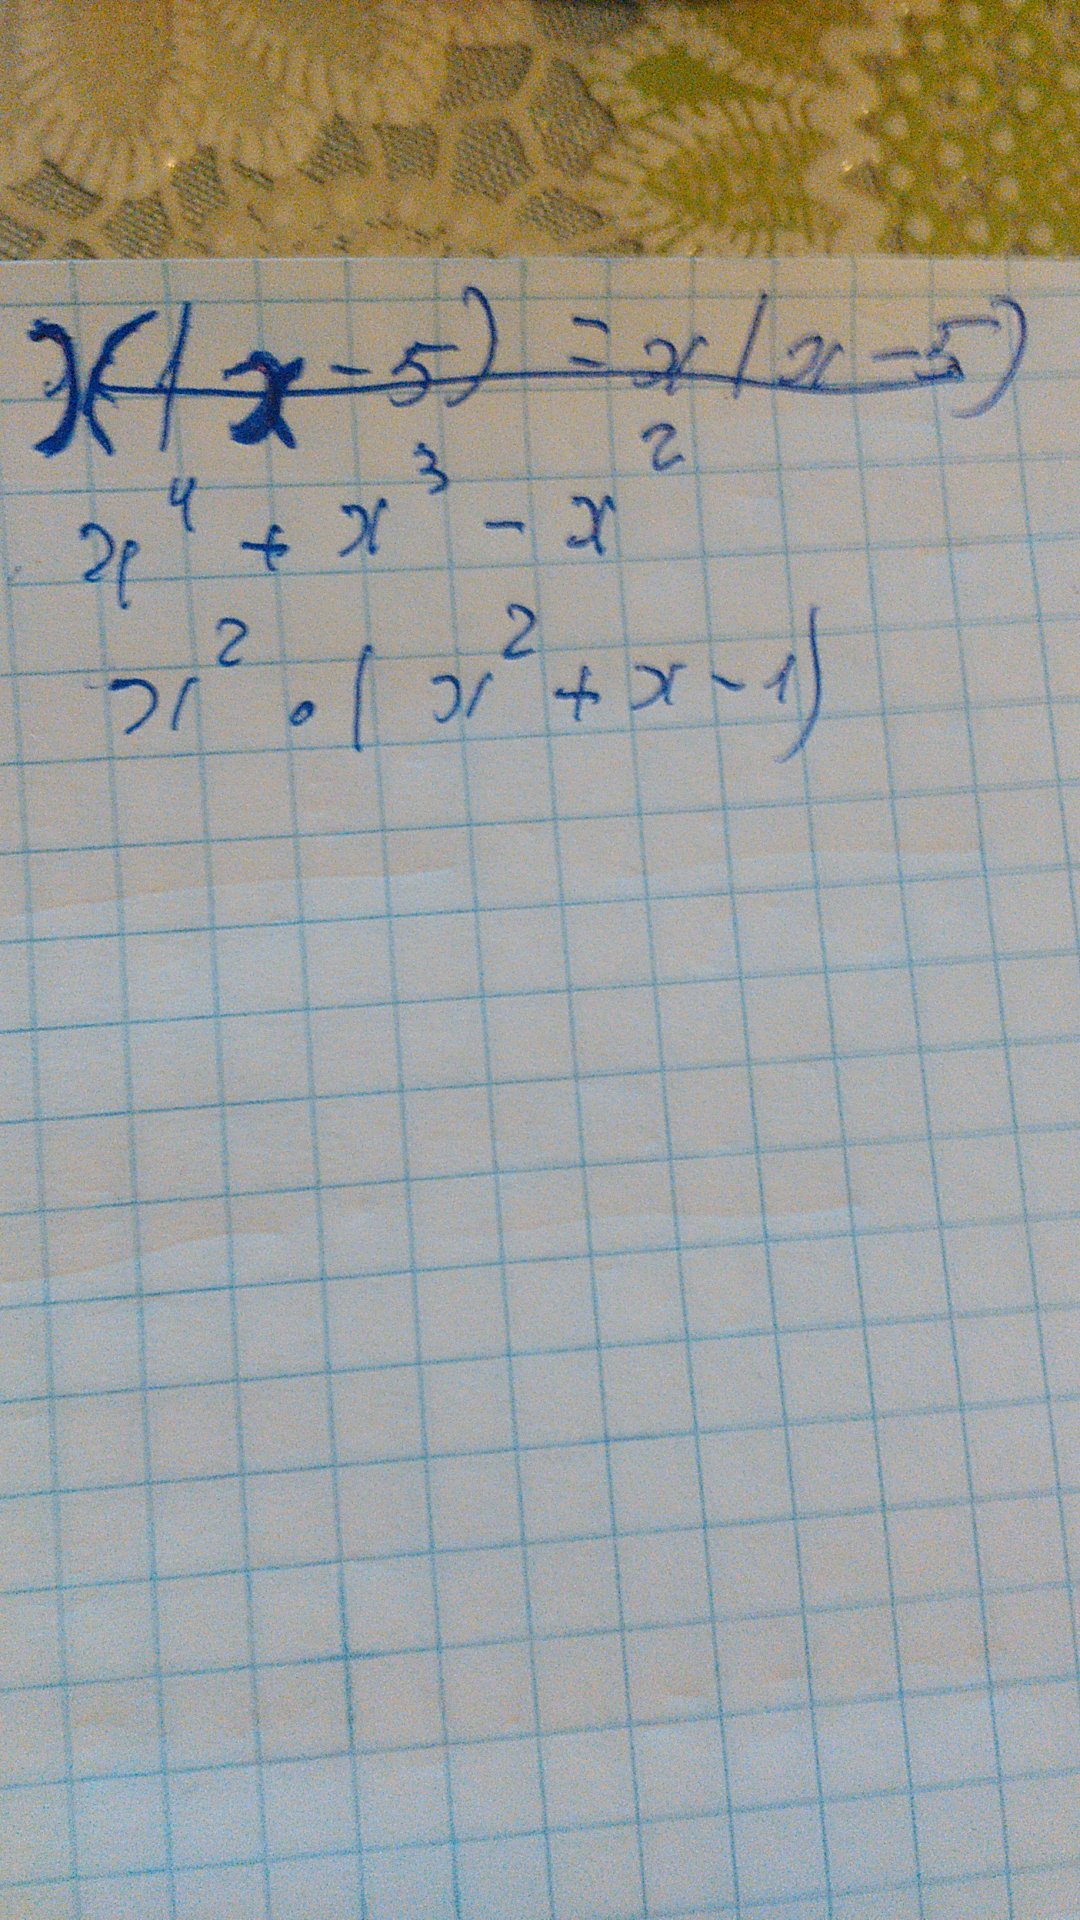 x(x-5) = x(x-5)
x⁴ + x³ - x²
x² · (x² + x - 1)